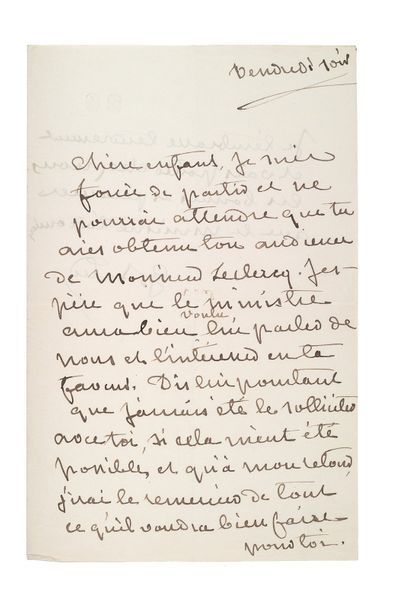 Vendredi soir
chère enfant, Je suis
forcée de partir et ne
pourrai attendre que tu
aies obtenu ton audience
de Monsieur Leclercq. J'es-
père que le ministre
aura bien voulu lui parler de
nous et l'intéresser en ta
faveur. Dis lui pourtant
que j'aurais été le solliciter
avec toi, si cela m'eut été
possible, et qu'à mon retour,
j'irai le remercier de tout
ce qu'il voudra bien faire
pour toi.